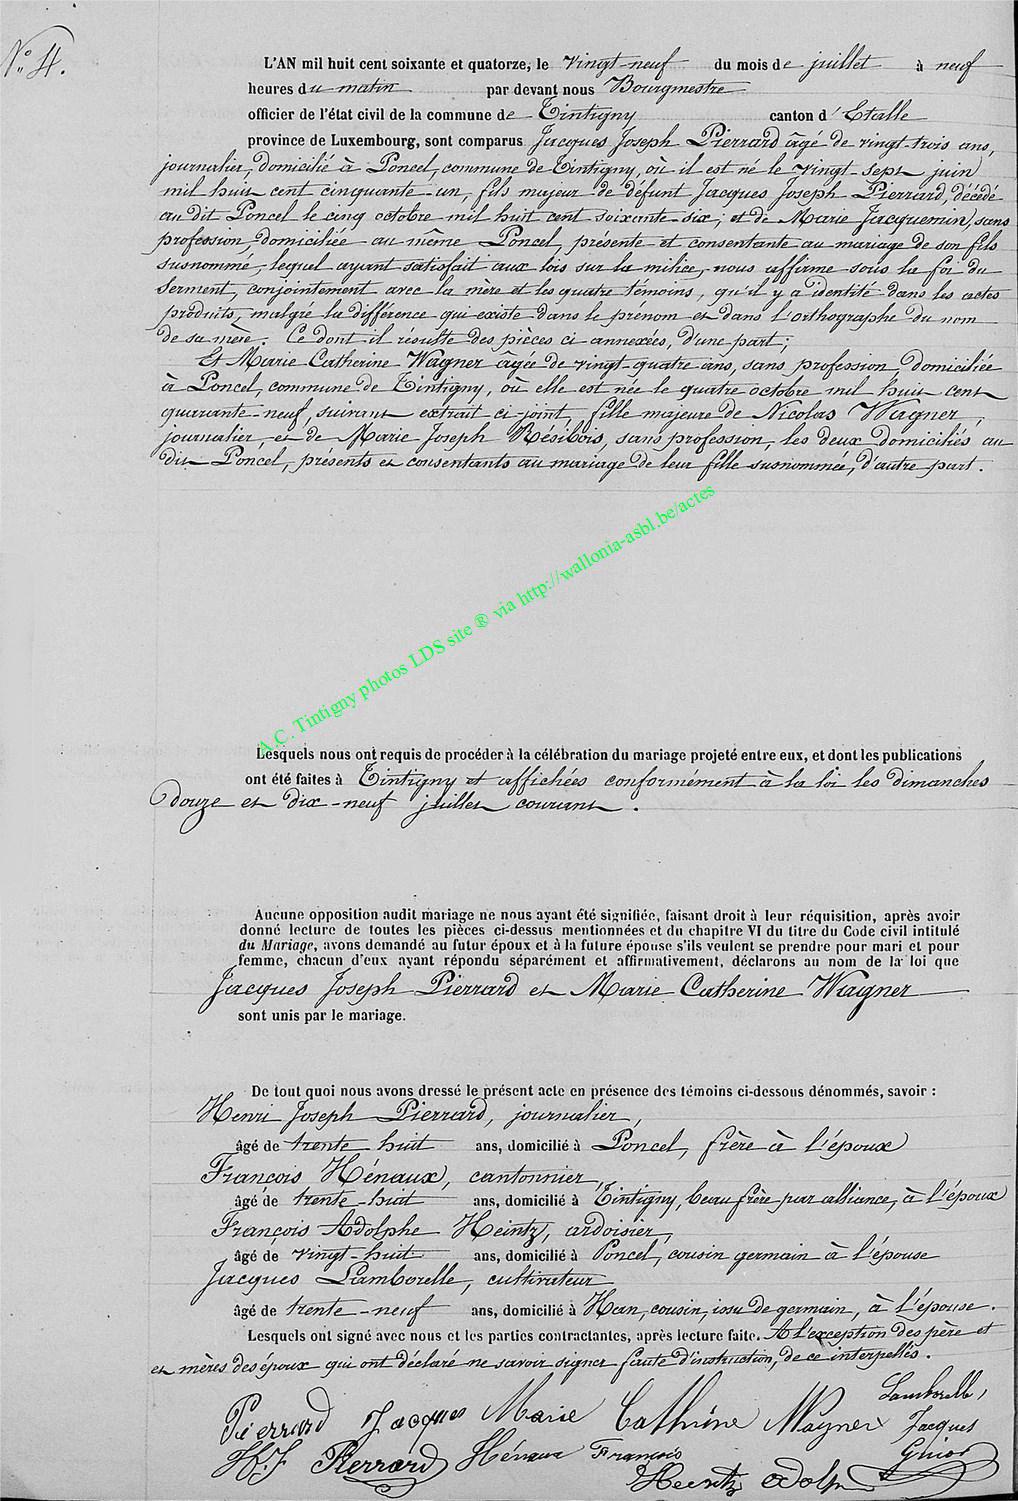 N° 4.
L'AN mil huit cent soixante et quatorze, le vingt-neuf du mois de juillet à neuf
heures du matin par devant nous Bourgmestre
officier de l'état civil de la commune de Tintigny canton d'Etalle
province de Luxembourg, sont comparus Jacques Joseph Pierrard âgé de vingt-trois ans,
journalier, domicilié à Poncel, commune de Tintigny, où il est né le vingt-sept juin
mil huit cent cinquante-un, fils majeur de défunt Jacques Joseph Pierrard, décédé
au dit Poncel le cinq octobre mil huit cent soixante-six; et de Marie Jacquemin, sans
profession, domiciliée au même Poncel, présente et consentante au mariage de son fils
susnommé, lequel ayant satisfait aux lois sur la milice, nous affirme sous la foi du
serment, conjointement avec la mère et les quatre témoins, qu'il y a identité dans les actes
produits, malgré la différence qui existe dans le prénom et dans l'orthographe du nom
de sa mère. Ce dont il résulte des pièces ci annexées, d'une part;
Et Marie Catherine Wagner âgée de vingt-quatre ans, sans profession, domiciliée
à Poncel, commune de Tintigny, où elle est née le quatre octobre mil huit cent
quarrante-neuf, suivant extrait ci-joint, fille majeure de Nicolas Wagner,
journalier, et de Marie Joseph Résibois, sans profession, les deux domiciliés au
dit Poncel, présents et consentants au mariage de leur fille susnommée, d'autre part.
A.C. Tintigny photos LDS site ® via http://wallonia-asbl.be/actes
Lesquels nous ont requis de procéder à la célébration du mariage projeté entre eux, et dont les publications
ont été faites à Tintigny et affichées conformément à la loi les dimanches
douze et dix-neuf juillet courant.
Aucune opposition audit mariage ne nous ayant été signifiée, faisant droit à leur réquisition, après avoir
donné lecture de toutes les pièces ci-dessus mentionnées et du chapitre VI du titre du Code civil intitulé
du Mariage, avons demandé au futur époux et à la future épouse s'ils veulent se prendre pour mari et pour
femme, chacun d'eux ayant répondu séparément et affirmativement, déclarons au nom de la loi que
Jacques Joseph Pierrard et Marie Catherine Wagner
sont unis par le mariage.
De tout quoi nous avons dressé le présent acte en présence des témoins ci-dessous dénommés, savoir :
Henri Joseph Pierrard, journalier,
âgé de trente huit ans, domicilié à Poncel, frère à l'époux
François Hénaux, cantonnier,
âgé de trente-huit ans, domicilié à Tintigny, beau frère par alliance, à l'époux
François Adolphe Heintz, ardoisier,
âgé de vingt-huit ans, domicilié à Poncel, cousin germain à l'épouse
Jacques Lamborelle, cultivateur
âgé de trente-neuf ans, domicilié à Han, cousin, issu de germain, à l'épouse.
Lesquels ont signé avec nous et les parties contractantes, après lecture faite. A l'exception des père et
et mères des époux qui ont déclaré ne savoir signer faute d'instruction, de ce interpellés.
Pierrard Jacques Marie Cathrine Wagner Lamborelle,
Jacques
H.J Pierrard Hénaux François
Heintz Adolphe